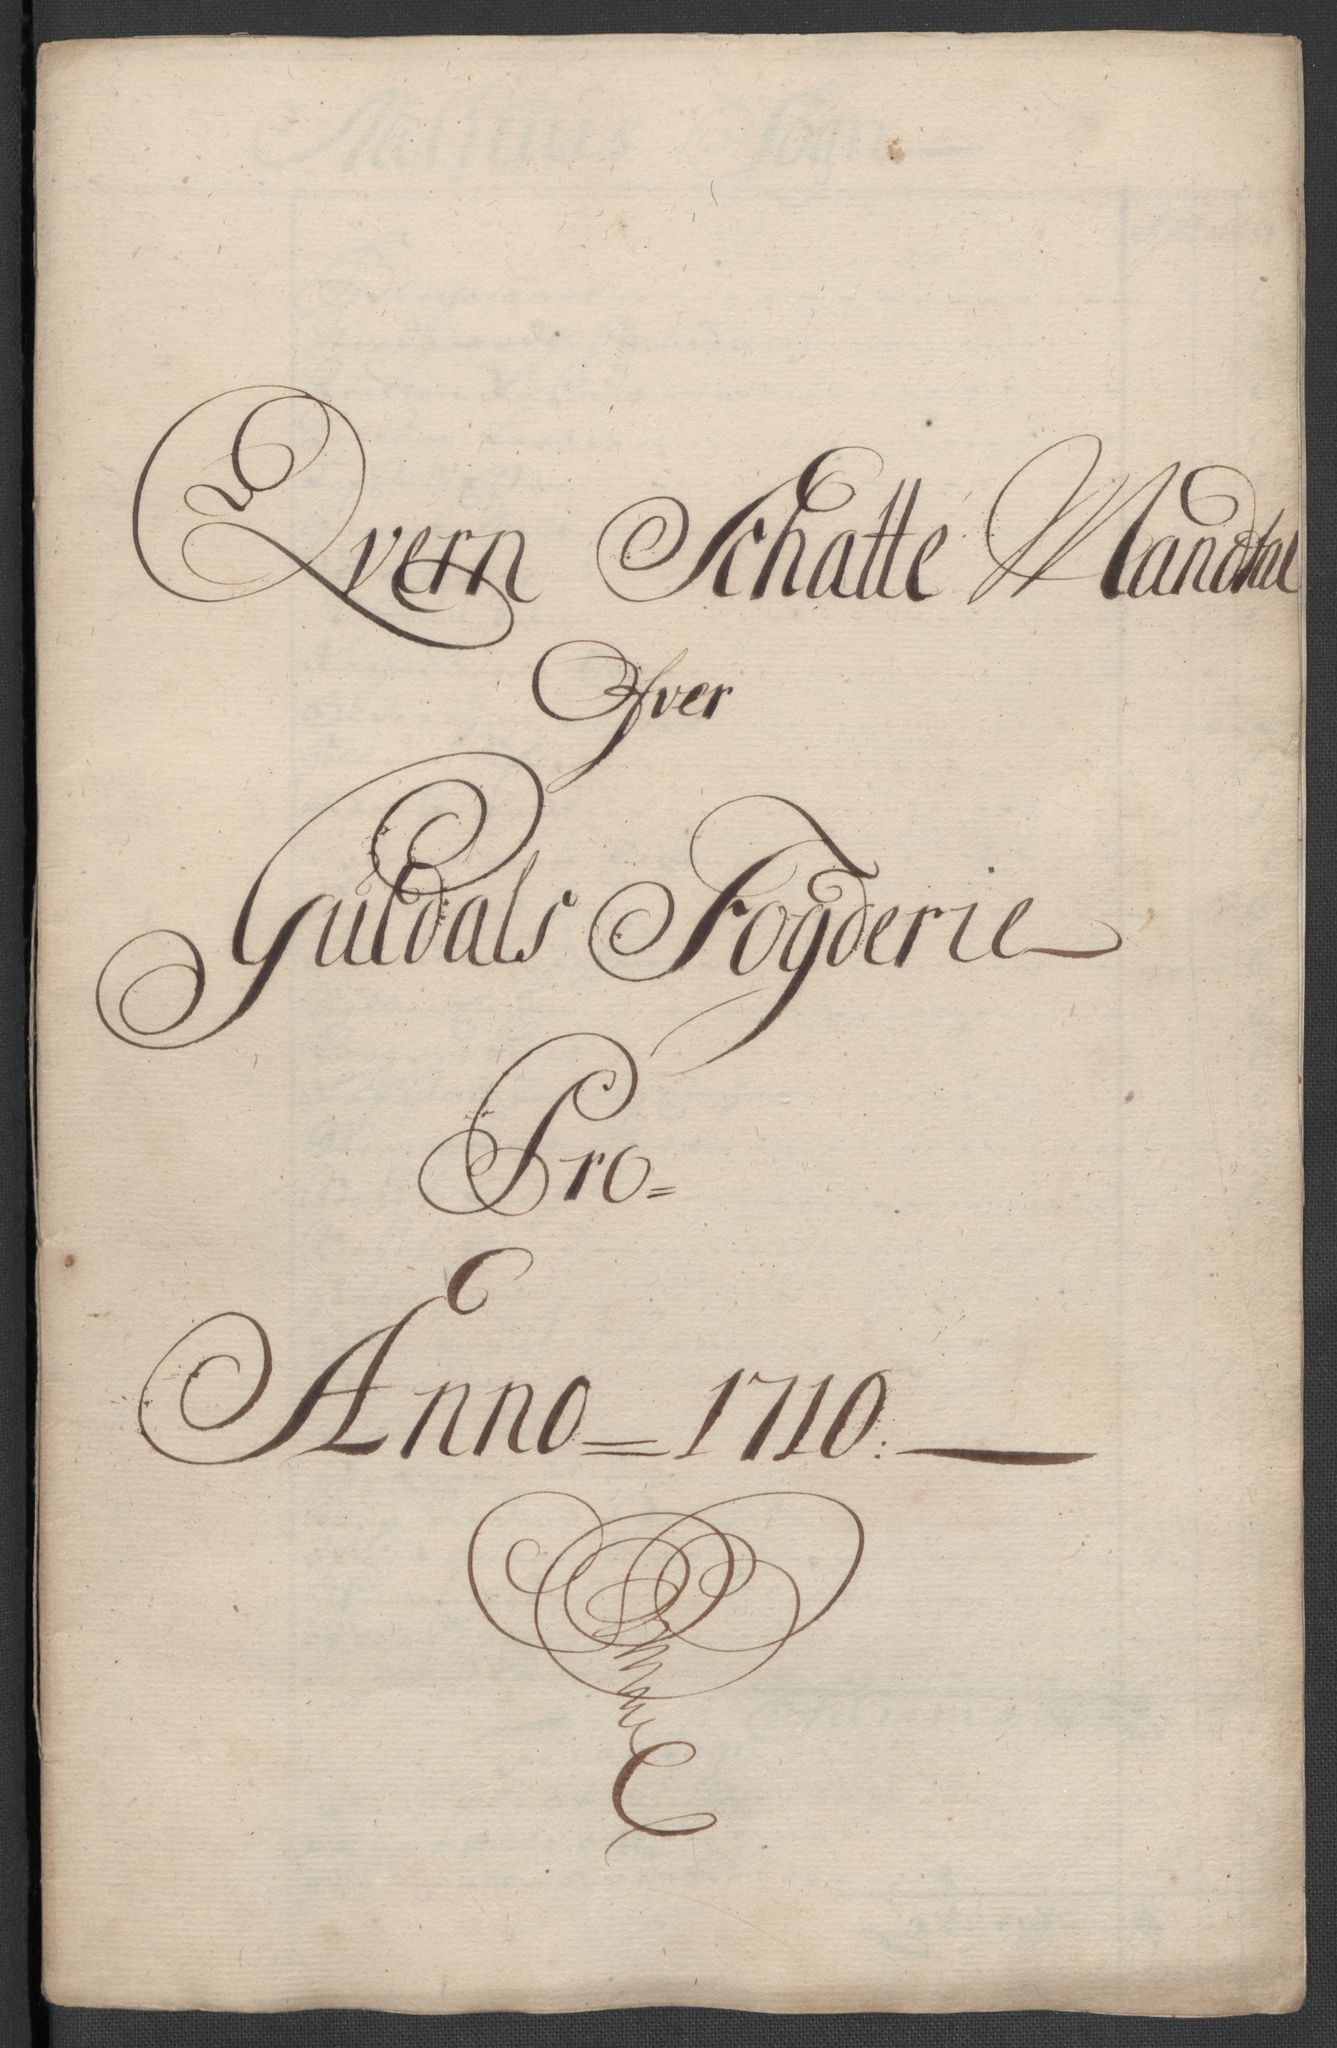 Qvern Schatte Mandtal
Ofver
Guldals Fogderie
Pro=
Anno = 1710.